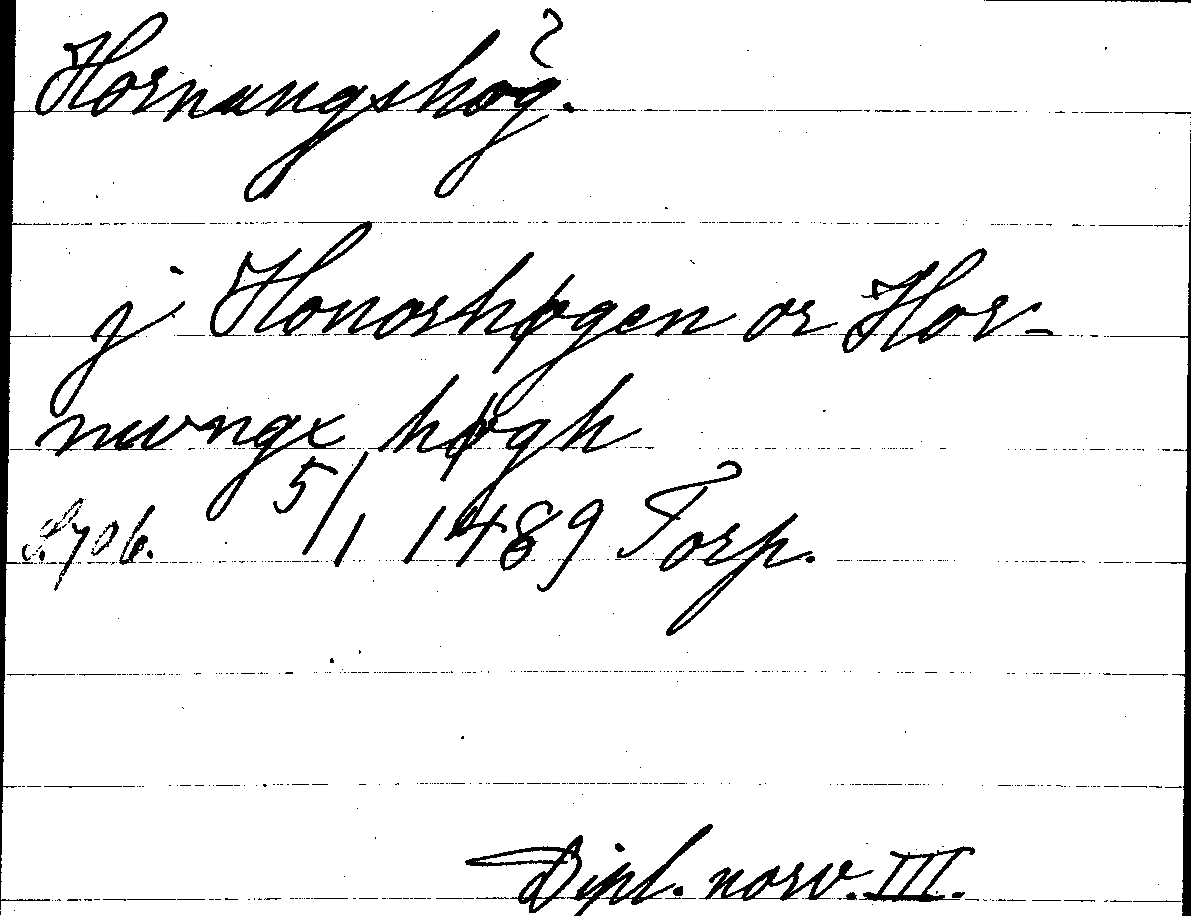 Hornungshög.
j Honorhøgen or Hor-
nwngx høgh
S. 706. 5/1 1489 Torp.
Dipl. norv. III.